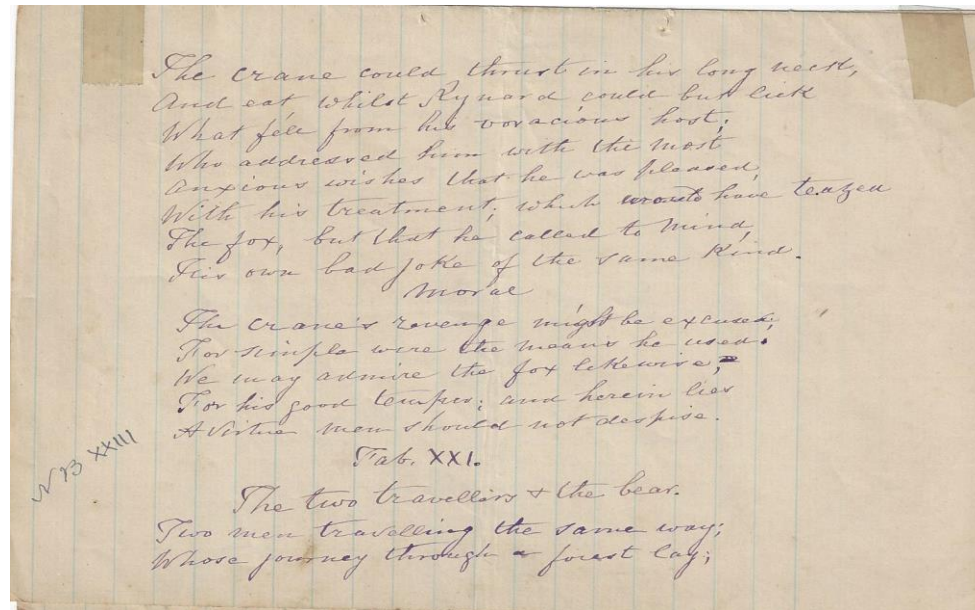 The crane could thrust in his long neck,
And eat whilst Rynard could but lick
What fell from his voracious host;
Who addressed him with the most
Anxious wishes that he was pleased,
With his treatment; which would have teazed
The fox, but that he called to mind,
His own bad joke of the same kind.
Moral
The crane's revenge might be excused;
For simple were the means he used.
We may admire the fox likewise,
For his good temper; and herein lies
A virtue men should not despise.
N B XXIII
Fab. XXI.
The two travellers & the bear.
Two men travelling the same way;
Whose journey through a forest lay;